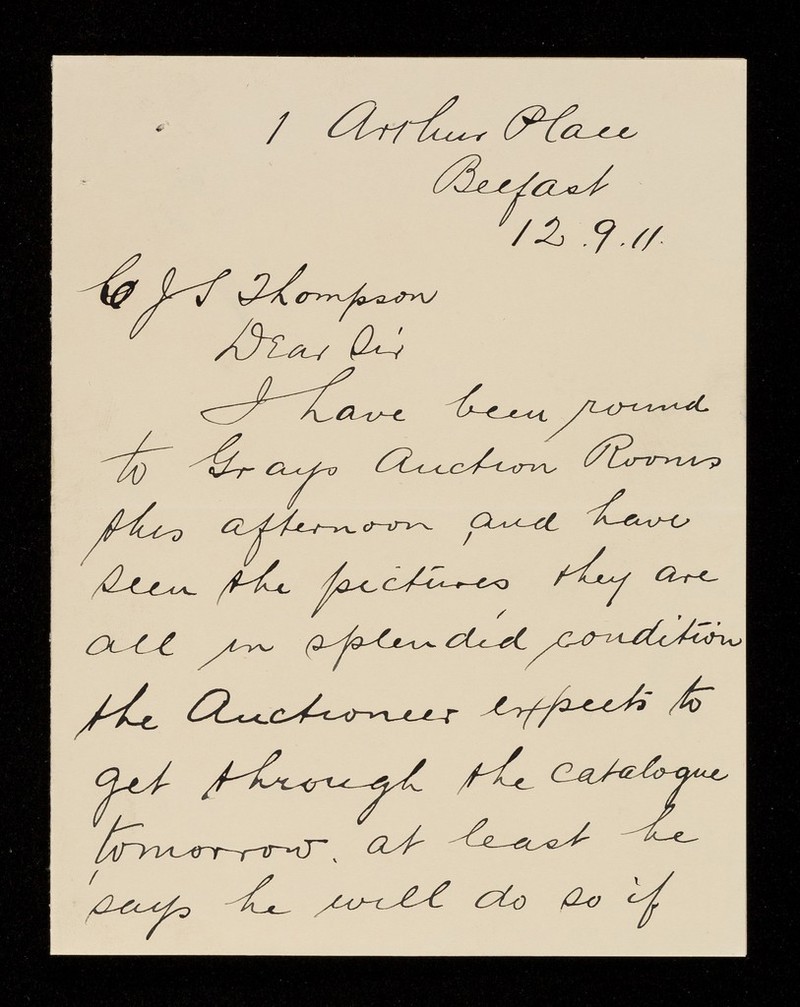 1 Arthur Place
Belfast
12.9.11.
C J S Thompson
Dear Sir
I have been round
to Grays Auction Rooms
this afternoon, and have
seen the pictures they are
all in splendid condition
the Auctioneer expects to
get through the catalogue
tomorrow. at least he
says he will do so if